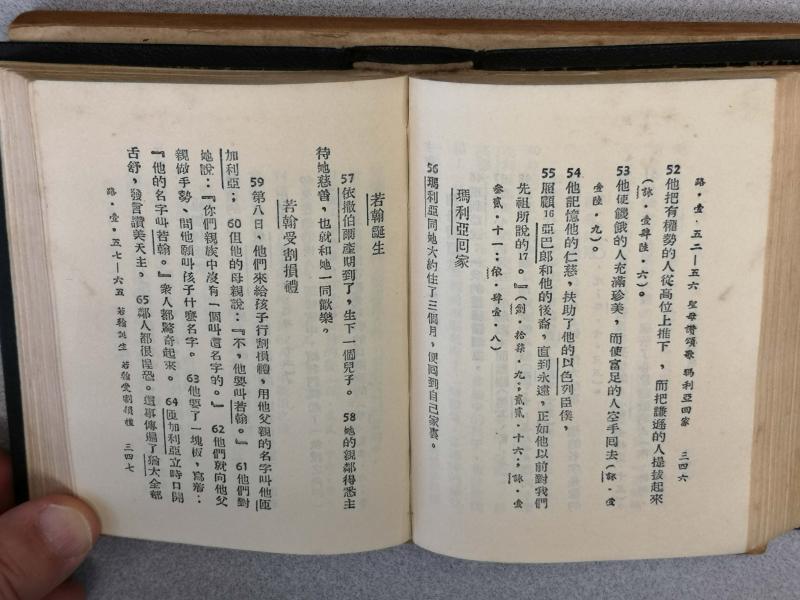 路·壹·五二—五六 聖母讚頌歌 瑪利亞回家 三四六
52他把有權勢的人從高位上推下,而把謙遜的人擡拔起來
(詠·壹肆陸·六)。
53他使饑餓的人充滿珍美,而使富足的人空手回去(詠·壹
壹陸·九)。
54他記憶他的仁慈,扶助了他的以色列臣僕,
55照顧16亞巴郎和他的後裔,直到永遠,正如他以前對我們
先祖所說的17。』(創·拾柒·九;貳貳·十六;詠·壹
叁貳·十一;依·肆壹·八)
瑪利亞回家
56瑪利亞同她大約住了三個月,便回到自己家裏。
若翰誕生
57依撒伯爾產期到了,生下一個兒子。 58她的親鄰得悉主
待她慈善,也就和她一同歡樂。
若翰受割損禮
59第八日,他們來給孩子行割損禮,用他父親的名字叫他匝
加利亞; 60但他的母親說:『不,他要叫若翰。』 61他們對
她說:『你們親族中沒有一個叫這名字的。』 62他們就向他父
親做手勢、問他願叫孩子什麼名字。 63他要了一塊板,寫着:
『他的名字叫若翰。』衆人都驚奇起來。 64匝加利亞立時口開
舌舒,發言讚美天主。 65鄰人都很惶恐。這事傳遍了猶大全部
路·壹·五七—六五 若翰誕生 若翰受割損禮 三四七